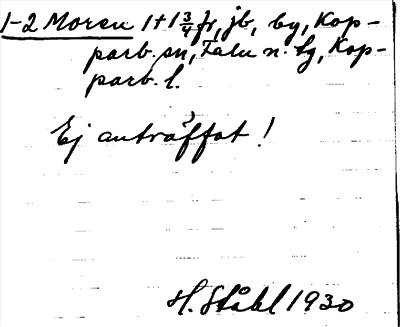 1-2 Moren 1+1 3/4 fr, jb, by, Kop-
parb. sn, Falu n. lg, Kop-
parb. l.
Ej anträffat!
H. Ståhl 1930